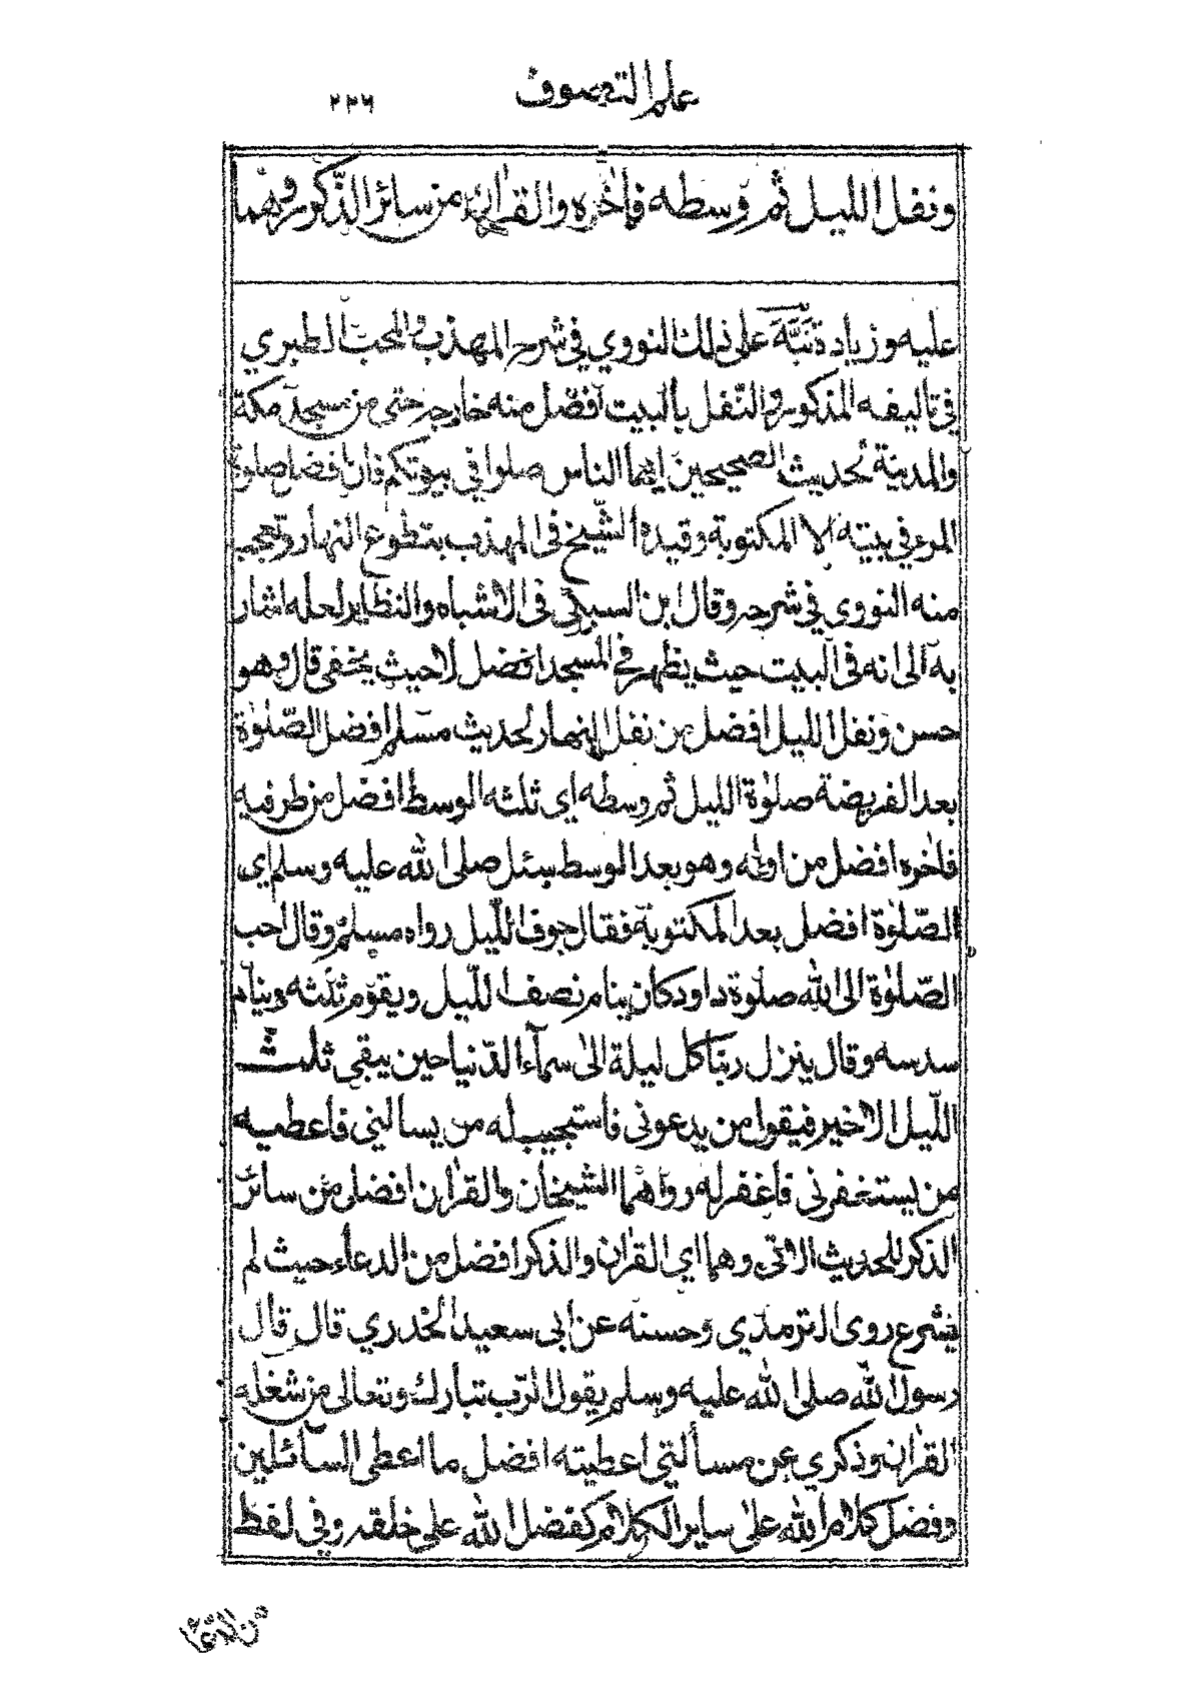 علم التصوف
٢٣٦
ونفل الليل ثم وسطه فآخره والقرآن من سائر الذكور وهما
عليه وزيادة نبه على ذلك النووي في شرح المهذب والمحب الطبري
في تأليفه المذكور والنفل بالبيت أفضل منه خارجه حتى من مسجد مكة
والمدينة لحديث الصحيحين ايها الناس صلوا في بيوتكم فان افضل صلوة
المرء في بيته الا المكتوبة وقيده الشيخ في المهذب بتطوع النهار وتعجب
منه النووي في شرحه وقال ابن السبكي في الاشباه والنظاير لعله اشار
به الى انه في البيت حيث يظهر في المسجد افضل لا حيث يخفى قال وهو
حسن ونفل الليل افضل من نفل النهار لحديث مسلم افضل الصلوة
بعد الفريضة صلوة الليل ثم وسطه اي ثلثه الوسط افضل من طرفيه
فاخره افضل من اوله وهو بعد الوسط سئل صلى الله عليه وسلم اي
الصلوة افضل بعد المكتوبة فقال جوف الليل رواه مسلم وقال احب
الصلوة الى الله صلوة داود كان ينام نصف الليل ويقوم ثلثه وينام
سدسه وقال ينزل ربنا كل ليلة الى سماء الدنيا حين يبقى ثلث
الليل الاخير فيقول من يدعوني فاستجيب له من يسالني فاعطيه
من يستغفرني فاغفر له رواهما الشيخان والقرآن افضل من سائر
الذكر للحديث الاتي وهما اي القرآن والذكر افضل من الدعاء حيث لم
يشرع روى الترمذي وحسنه عن ابي سعيد الخدري قال قال
رسول الله صلى الله عليه وسلم يقول الرب تبارك وتعالى من شغله
القرآن وذكري عن مسألتي اعطيته افضل ما اعطى السائلين
وفضل كلام الله على ساير الكلام كفضل الله على خلقه وفي لفظ
من الدعا